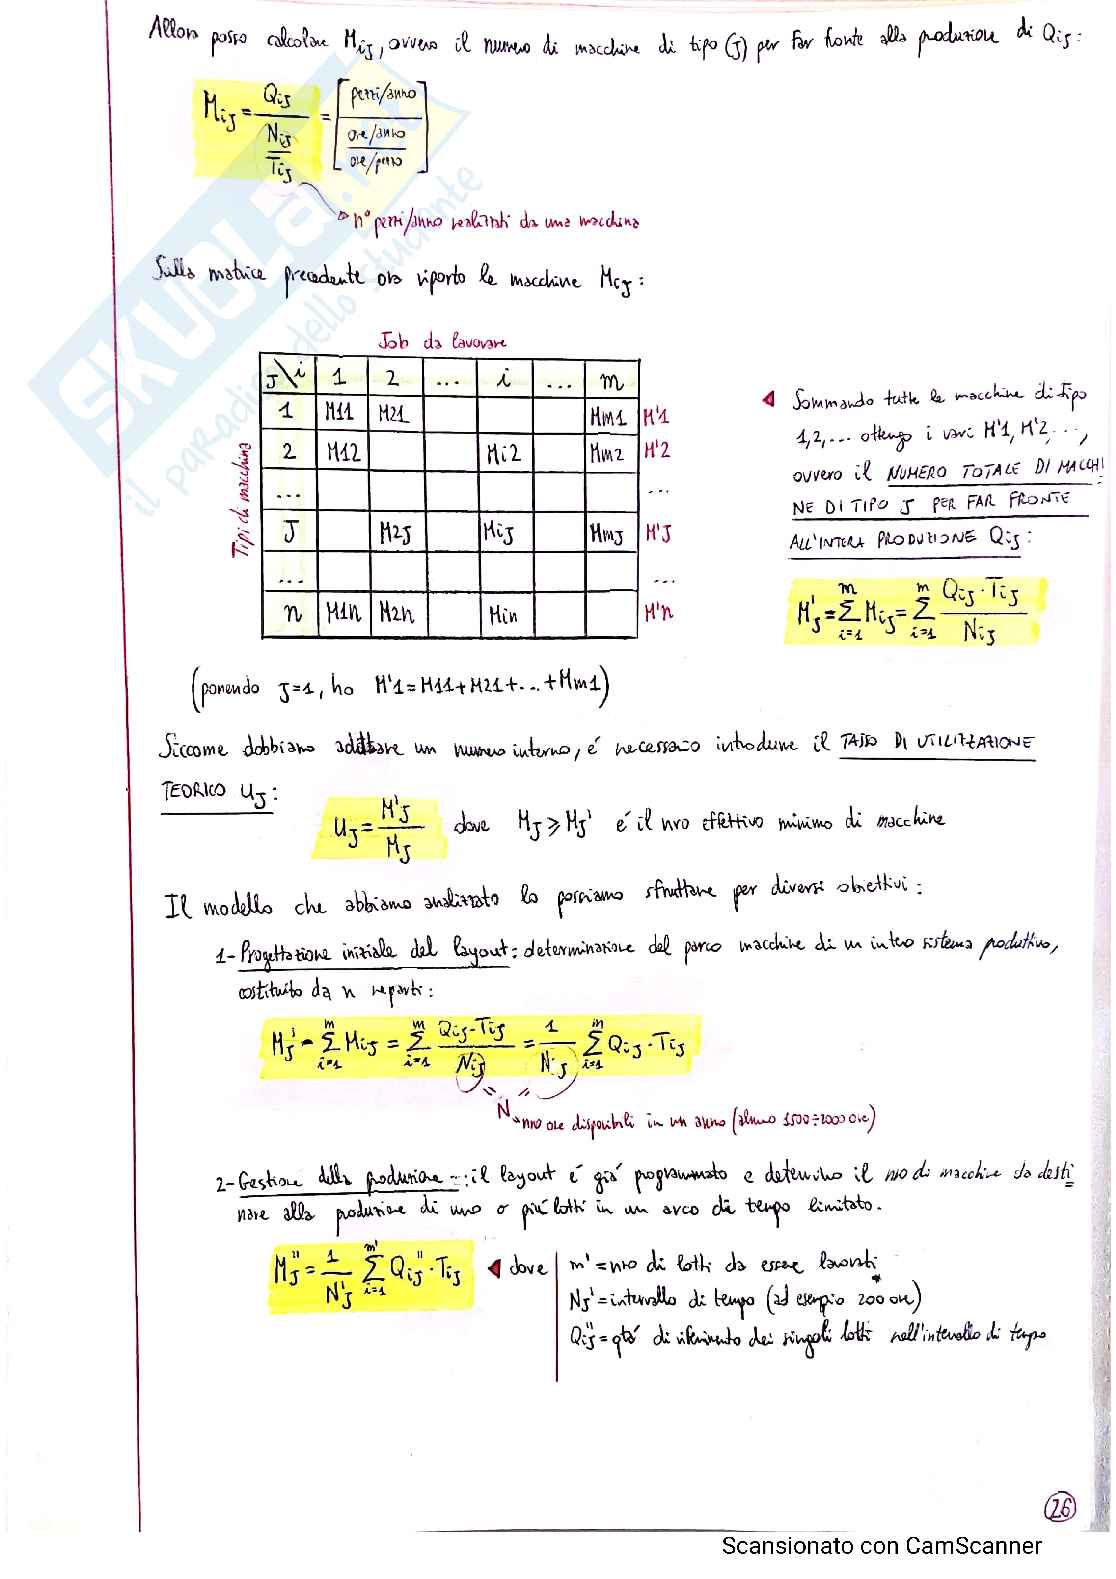 Allora posso calcolare Mij, ovvero il numero di macchine di tipo (J) per far fronte alla produzione di Qij:
Mij = Qij / (Nij / Tij) = [pezzi/anno / (ore/anno / ore/pezzo)]
n° pezzi/anno realizzati da una macchina
Sulla matrice precedente ora riporto le macchine Mij:
Job da lavorare
Tipi di macchina
J\i 1 2 ... i ... m
1 M11 M21 Mm1 M'1
2 M12 Mi2 Mm2 M'2
... ...
J M2J MiJ MmJ M'J
... ...
n M1n M2n Min M'n
Sommando tutte le macchine di tipo
1,2,... ottengo i vari M'1, M'2,...,
ovvero il NUMERO TOTALE DI MACCHI
NE DI TIPO J PER FAR FRONTE
ALL'INTERA PRODUZIONE Qij:
M'J = Σ i=1 m Mij = Σ i=1 m Qij · Tij / Nij
(ponendo J=1, ho M'1 = M11 + M21 + ... + Mm1)
Siccome dobbiamo adottare un numero interno, é necessario introdurre il TASSO DI UTILIZZAZIONE
TEORICO UJ:
UJ = M'J / MJ dove MJ ⩾ MJ' é il nro effettivo minimo di macchine
Il modello che abbiamo analizzato lo possiamo sfruttare per diversi obiettivi:
1- Progettazione iniziale del layout: determinazione del parco macchine di un intero sistema produttivo,
costituito da n reparti:
MJ' = Σ i=1 m Mij = Σ i=1 m Qij · Tij / Nij = 1 / N.J Σ i=1 m Qij · Tij
= N =
nro ore disponibili in un anno (almeno 1500÷2000 ore)
2- Gestione della produzione: il layout é giá programmato e determino il nro di macchine da desti
nare alla produzione di uno o piú lotti in un arco di tempo limitato.
MJ'' = 1 / N'J Σ i=1 m' Qij'' · Tij dove
m' = nro di lotti da essere lavorati
NJ' = intervallo di tempo (ad esempio 200 ore)
Qij'' = qtá di riferimento dei singoli lotti nell'intervallo di tempo
26
Scansionato con CamScanner
SKUOLA.net
il paradiso dello studente